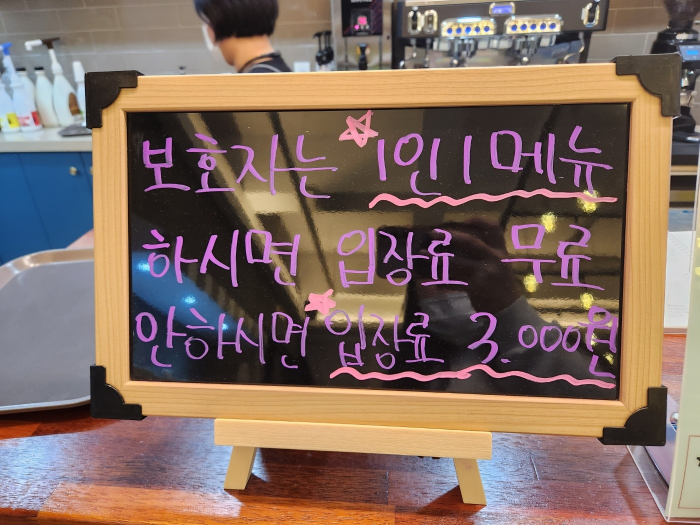 보호자는 1인 1 메뉴
하시면 입장료 무료
안하시면 입장료 3.000원